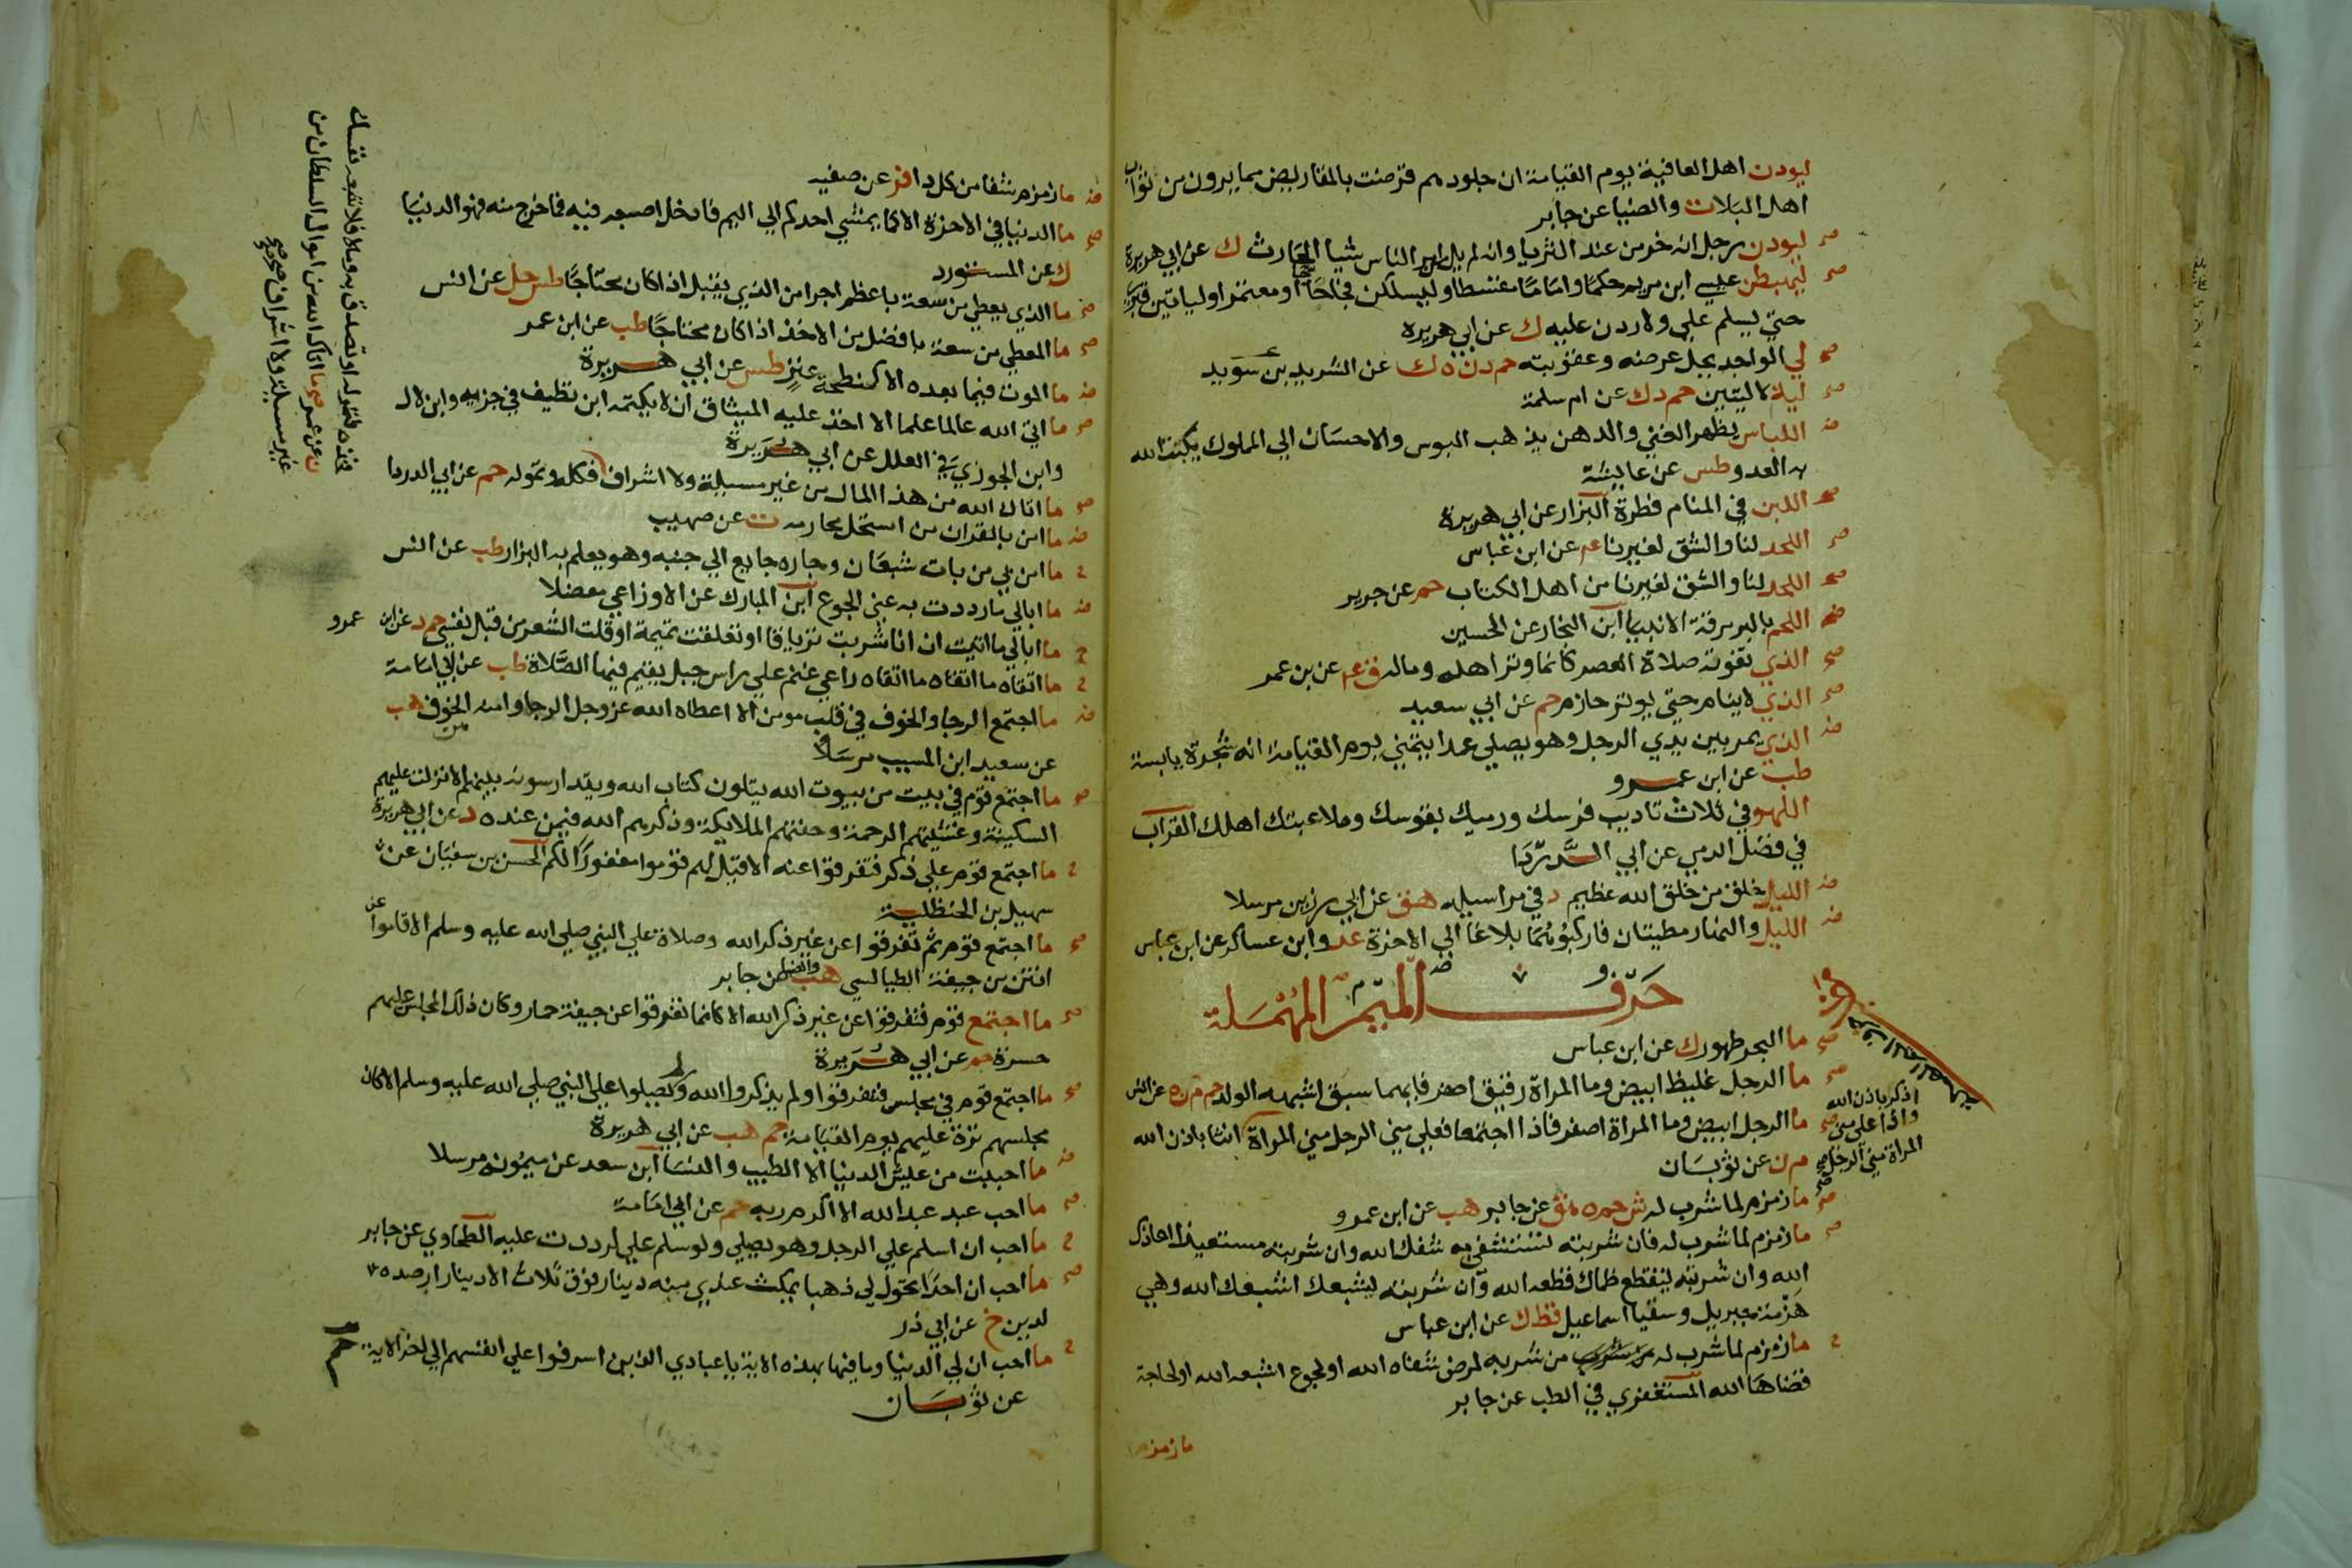 ليودن اهل العافية يوم القيامة ان جلودهم قرضت بالمقاريض مما يرون من ثواب
اهل البلات والضيا عن جابر
صح ليودن رجل انه خر من عند الثريا وانه لم يل امر الناس شيا الحارث ك عن ابي هريرة
صح ليهبطن عيسي ابن مريم حكما واماما مقسطا وليسلكن فجا حاجا او معتمرا ولياتين قبري
حتي يسلم علي ولاردن عليه ك عن ابي هريرة
صح لي الواجد يحل عرضه وعقوبته حم د ن ه ك عن الشريد بن سويد
صح لية لا ليتين حم د ك عن ام سلمة
ضـ اللباس يظهر الغني والدهن يذهب البوس والاحسان الي المملوك يكبت الله
به العدو طس عن عايشة
صح اللبن في المنام فطرة البزار عن ابي هريرة
صح اللحد لنا والشق لغيرنا عم عن ابن عباس
صح اللحد لنا والشق لغيرنا من اهل الكتاب حم عن جرير
ضـ اللحم بالبر مرقة الانبيا ابن النجار عن الحسين
صح الذي تفوته صلاة العصر كانما وتر اهله وماله ق عم عن بن عمر
صح الذي لا ينام حتي يوتر حازم حم عن ابي سعيد
ضـ الذي يمر بين يدي الرجل وهو يصلي عمدا يتمني يوم القيامة انه شجرة يابسة
طب عن ابن عمرو
اللهو في ثلاث تاديب فرسك ورميك بقوسك وملاعبتك اهلك القراب
في فضل الرمي عن ابي الدردا
ضـ الليل خلق من خلق الله عظيم د في مراسيله هق عن ابي رزين مرسلا
ضـ الليل والنهار مطيتان فاركبوهما بلاغا الي الاخرة عد وابن عساكر عن ابن عباس
حرف الميم المهملة
صح ما البحر طهور ك عن ابن عباس
صح ما الرجل غليظ ابيض وما المراة رقيق اصفر فايهما سبق اشبهه الولد حم م ن ه عن انس
صح ما الرجل ابيض وما المراة اصفر فاذا اجتمعا فعلي مني الرجل مني المراة
اذكر باذن الله
واذا علي مني
المراة مني الرجل
انثا باذن الله
م ن عن ثوبان
صح ما زمزم لما شرب له ش حم ه هق عن جابر هب عن ابن عمرو
صح ما زمزم لما شرب له فان شربته لتستشفي به شفاك الله وان شربته مستعيذا اعاذك
الله وان شربته ليقطع ظماك قطعه الله وان شربته ليشبعك اشبعك الله وهي
هزمة جبريل وسقيا اسماعيل قط ك عن ابن عباس
ح ما زمزم لما شرب له من شربه لمرض شفاه الله او لجوع اشبعه الله او لحاجة
قضاها الله المستغفري في الطب عن جابر
ما زمزم
١٨١
ضـ ما زمزم شفا من كل دا فر عن صفيه
صح ما الدنيا في الاخرة الا كما يمشي احدكم الي اليم فادخل اصبعه فيه فما خرج منه فهو الدنيا
ك عن المستورد
صح ما الذي يعطي من سعة باعظم اجرا من الذي يقبل اذا كان محتاجا طس حل عن انس
صح ما المعطي من سعة بافضل من الاخذ اذا كان محتاجا طب عن ابن عمر
ضـ ما الموت فيما بعده الا كنطحة عنز طس عن ابي هريرة
صح ما اتي الله عالما علما الا اخذ عليه الميثاق ان لا يكتمه ابن نظيف في جزيه وابن لال
وابن الجوزي في العلل عن ابي هريرة
صح ما اتاك الله من هذا المال من غير مسيلة ولا اشراف فكله وتموله حم عن ابي الدردا
ضـ ما امن بالقران من استحل محارمه ت عن صهيب
ح ما امن بي من بات شبعان وجاره جايع الي جنبه وهو يعلم به البزار طب عن انس
ضـ ما ابالي ما رددت به عني الجوع ابن المبارك عن الاوزاعي معضلا
ح ما ابالي ما اتيت ان انا شربت ترياقا او تعلقت تميمة او قلت الشعر من قبل نفسي حم د عن ابن عمرو
ح ما اتقاه ما اتقاه ما اتقاه راعي غنم علي راس جبل يقيم فيها الصلاة طب عن ابي امامة
ضـ ما اجتمع الرجا والخوف في قلب مومن الا اعطاه الله عز وجل الرجا وامنه الخوف هب
عن سعيد ابن المسيب مرسلا
صح ما اجتمع قوم في بيت من بيوت الله يتلون كتاب الله ويتدارسونه بينهم الا نزلت عليهم
السكينة وغشيتهم الرحمة وحفتهم الملايكة وذكرهم الله فيمن عنده د عن ابي هريرة
ح ما اجتمع قوم علي ذكر فتفرقوا عنه الا قيل لهم قوموا مغفورا لكم الحسن بن سفيان عن
سهيل بن الحنظلية
صح ما اجتمع قوم ثم تفرقوا عن غير ذكر الله وصلاة علي النبي صلي الله عليه وسلم الا قاموا عن
انتن من جيفة الطيالسي هب والضيا عن جابر
صح ما اجتمع قوم فتفرقوا عن غير ذكر الله الا كانما تفرقوا عن جيفة حمار وكان ذلك المجلس عليهم
حسرة حم عن ابي هريرة
صح ما اجتمع قوم في مجلس فتفرقوا ولم يذكروا الله ولم يصلوا علي النبي صلي الله عليه وسلم الا كان
مجلسهم ترة عليهم يوم القيامة حم هب عن ابي هريرة
ضـ ما احببت من عيش الدنيا الا الطيب والنسا ابن سعد عن ميمونه مرسلا
صح ما احب عبد عبدا لله الا اكرم ربه حم عن ابي امامة
ح ما احب ان اسلم علي الرجل وهو يصلي ولو سلم علي لرددت عليه الطحاوي عن جابر
صح ما احب ان احدا تحول لي ذهبا يمكث عندي منه دينار فوق ثلاث الا دينار ارصده
لدين خ عن ابي ذر
ح ما احب ان لي الدنيا وما فيها بهذه الاية يا عبادي الذين اسرفوا علي انفسهم الي اخر الاية حم
عن ثوبان
فخذه فتموله او تصدق به وما لا فلا تتبعه نفسك
ن عن عمر صح ما اتاك الله من اموال السلطان من
غير مسيلة ولا اشراف